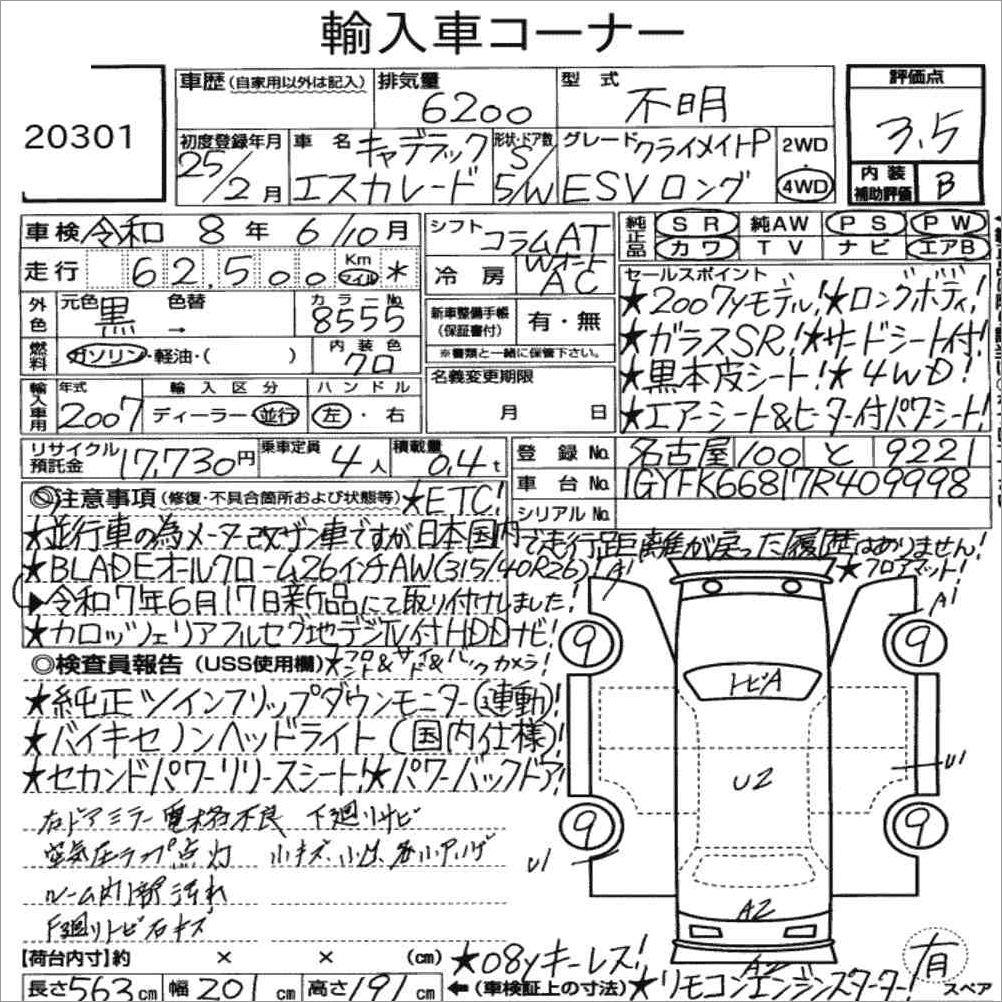 輸入車コーナー
20301
車歴(自家用以外は記入) 排気量 6200 型式 不明 評価点 3.5
初度登録年月 25/2月 車名 キャデラック エスカレード 形状・ドア数 S/5/W グレード クライメイトP ESVロング 2WD・4WD 内装補助評価 B
車検 令和 8年 6/10月 シフト コラムAT 純正品 SR 純AW PS PW
走行 62,500 Km マイル * 冷房 Wオート AC カワ TV ナビ エアB
外色 元色 黒 色替 → カラーNo. 8555 新車整備手帳(保証書付) 有・無
※書類と一緒に保管下さい。
セールスポイント
★2007yモデル!★ロングボディ!
★ガラスSR!★サードシート付!
★黒本皮シート!★4WD!
★エアーシート&ヒーター付パワーシート!
燃料 ガソリン・軽油・( ) 内装色 クロ
輸入車用 年式 2007 輸入区分 ディーラー・並行 ハンドル 左・右 名義変更期限 月 日
リサイクル預託金 17,730円 乗車定員 4人 積載量 0.4t
登録No. 名古屋 100 と 9221
車台No. 1GYFK66817R409998
シリアルNo.
注意事項(修復・不具合箇所および状態等)★ETC!
★並行車の為メーター改ザン車ですが日本国内で走行距離が戻った履歴はありません!
★BLADEオールクローム26インチAW(315/40R26)! ★フロアマット!
▶令和7年6月17日新品にて取り付けしました!
★カロッツェリアフルセグ地デジTV付HDDナビ!
◎検査員報告(USS使用欄)★フロント&サイド&バックカメラ!
★純正ツインフリップダウンモニター(連動)!
★バイキセノンヘッドライト(国内仕様)!
★セカンドパワーリリースシート!★パワーバックドア!
右ドアミラー電格不良 下廻リサビ
空気圧ランプ点灯
ルーム内部汚れ
A1
A1
9
9
トビA
U2
U1
9
9
U1
A2
A2
【荷台内寸】約 × × (cm) ★08yキーレス! 有
長さ563cm 幅201cm 高さ191cm ←(車検証上の寸法)★リモコンエンジンスターター! スペア